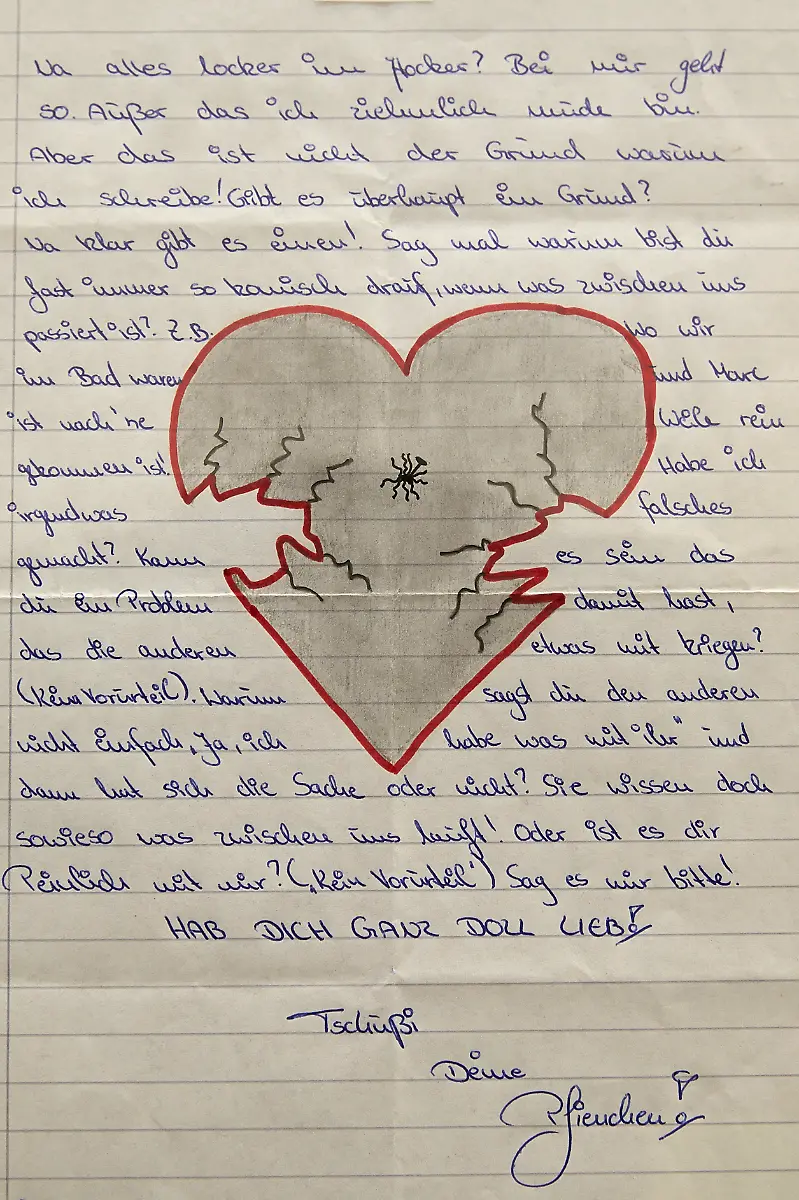 Na alles locker im Hocker? Bei mir geht
so. Außer das ich ziehmlich müde bin.
Aber das ist nicht der Grund warum
ich schreibe! Gibt es überhaupt ein Grund?
Na klar gibt es einen! Sag mal warum bist du
fast immer so komisch drauf, wenn was zwischen uns
passiert ist? Z.B. Wo wir
im Bad waren und Marc
ist nach 'ne Weile rein
gekommen ist! Habe ich
irgendwas falsches
gemacht? Kann es sein das
du ein Problem damit hast,
das die anderen etwas mit kriegen?
(Kein Vorurteil). Warum sagst du den anderen
nicht einfach, Ja, ich habe was mit ihr" und
dann hat sich die Sache oder nicht? Sie wissen doch
sowieso was zwischen uns läuft! Oder ist es dir
Peinlich mit mir? („Kein Vorurteil") Sag es mir bitte!
HAB DICH GANZ DOLL LIEB!
Tschüßi
Deine